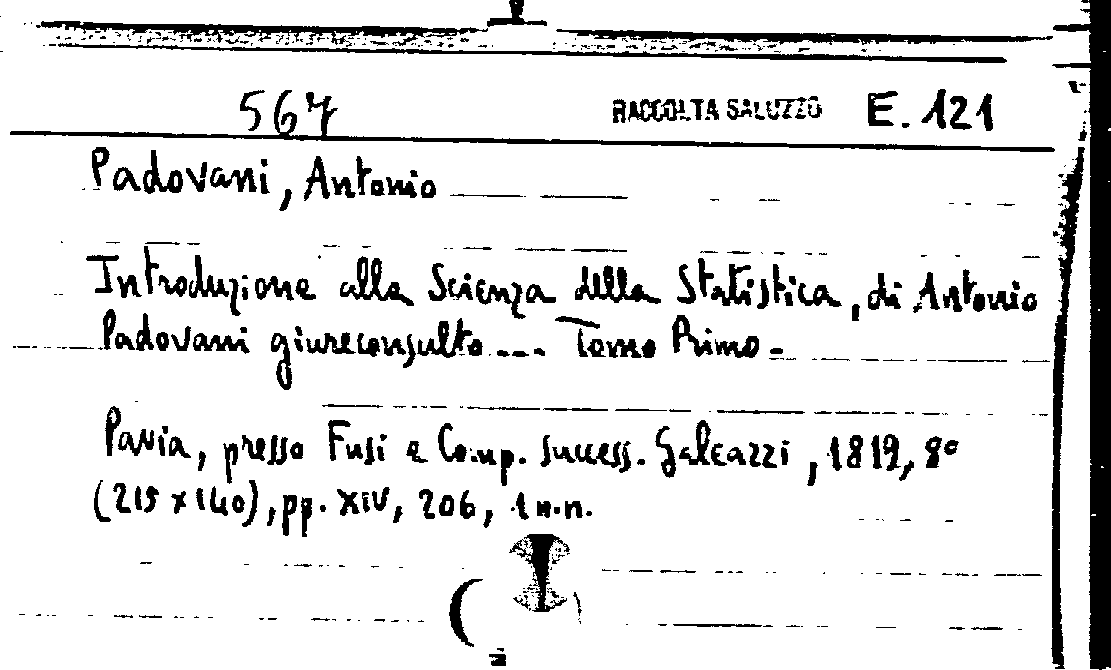 567 RACCOLTA SALUZZO E. 121
Padovani, Antonio
Introduzione alla Scienza della Statistica, di Antonio
Padovani giureconsulto... Tomo Primo.
Pavia, presso Fusi e Comp. success. Galeazzi, 1819, 8°
(215 x 140), pp. XIV, 206, 1 n.n.